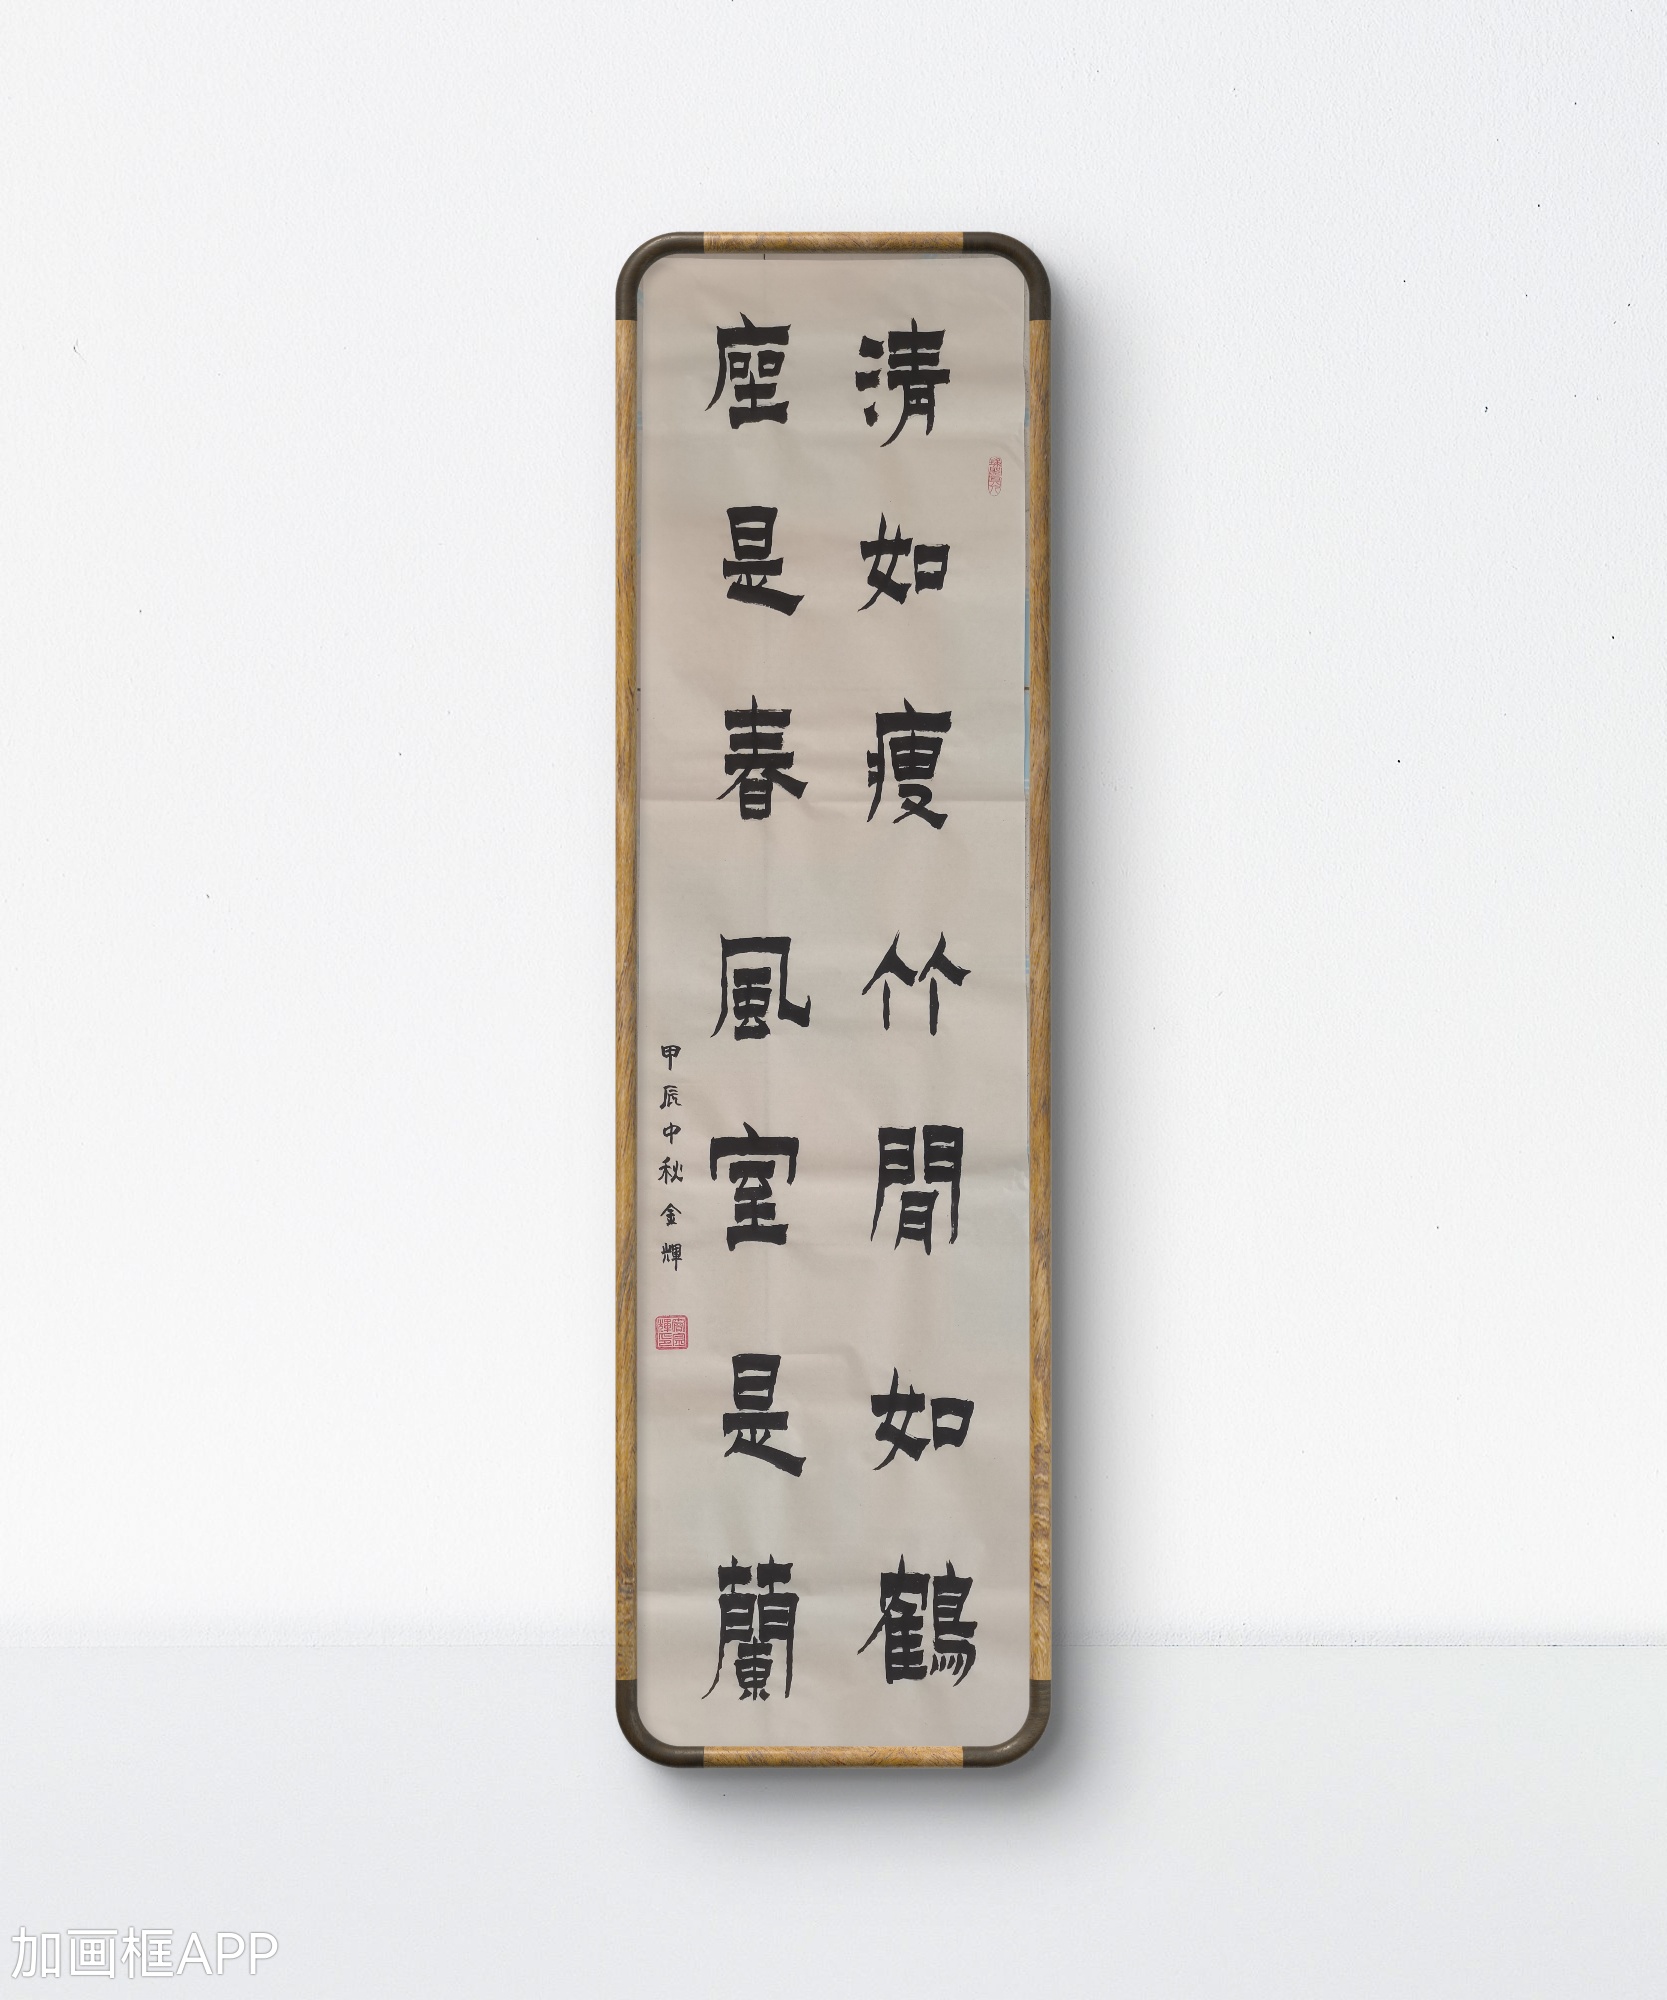 清如瘦竹閒如鶴
座是春風室是蘭
甲辰中秋金輝
加画框APP